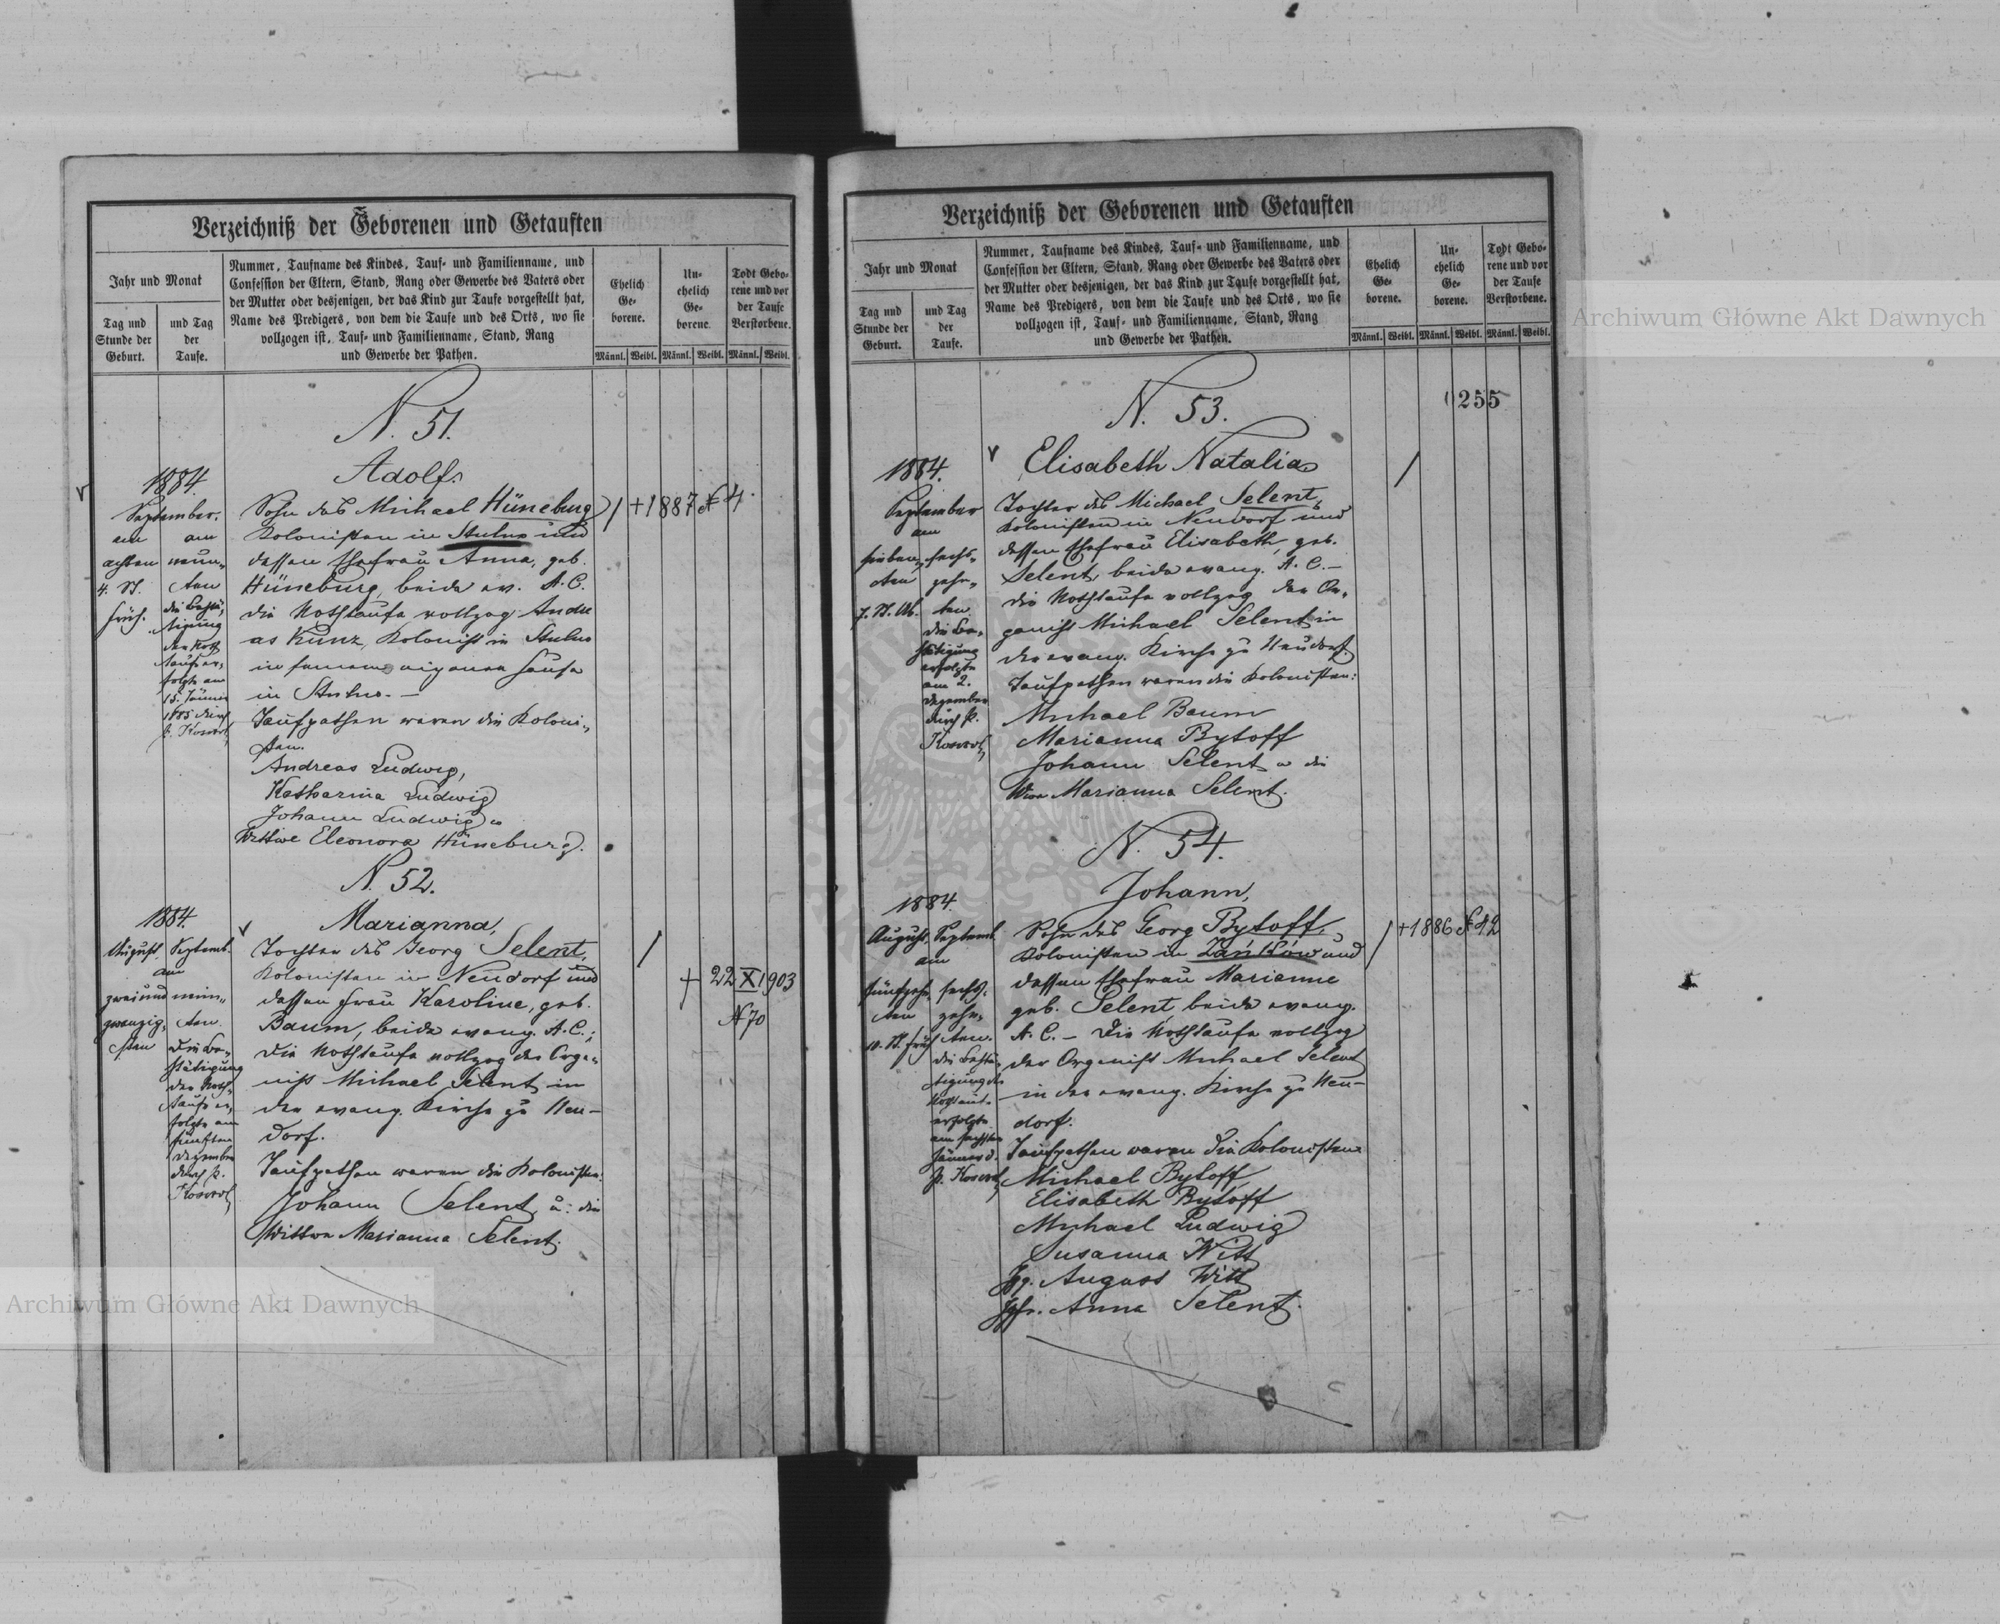 Verzeichniß der Geborenen und Getauften
Jahr und Monat
Tag und
Stunde der
Geburt.
und Tag
der
Taufe.
Nummer, Taufname des Kindes, Tauf- und Familienname, und
Confession der Eltern, Stand, Rang oder Gewerbe des Vaters oder
der Mutter oder desjenigen, der das Kind zur Taufe vorgestellt hat,
Name des Predigers, von dem die Taufe und des Orts, wo sie
vollzogen ist, Tauf- und Familienname, Stand, Rang
und Gewerbe der Pathen.
Ehelich
Ge-
borene.
Un-
ehelich
Ge-
borene.
Todt Gebo-
rene und vor
der Taufe
Verstorbene.
Männl. Weibl. Männl. Weibl. Männl. Weibl.
N. 51.
1884.
September.
am
achten
4. St.
früh.
am
neun-
ten
die Bestä-
tigung
der Noth
taufe er-
folgte am
15. Jänner
1885 durch
P.
Adolf.
Sohn des Michael Hüneburg
Kolonisten in und
dessen Ehefrau Anna, geb.
Hüneburg, beide ev. A. C.
die Nothtaufe vollzog Andre
as Kunz, Kolonist in
in seinem eigenen Hause
in
Taufpathen waren die Koloni-
sten.
Andreas Ludwig,
Katharina Ludwig
Johann Ludwig
Wittwe Eleonora Hüneburg.
/ +1887 N 4.
N. 52.
1884.
August. Septemb.
am
zwei und
zwanzig-
sten
neun-
ten.
Die Be-
stätigung
der Noth-
taufe er-
folgte am
fünften
Dezember
durch P.
Marianna,
Tochter des Georg Selent,
Kolonisten in Neudorf und
dessen Frau Karoline, geb.
Baum, beide evang. A. C.;
Die Nothtaufe vollzog der Orga-
nist Michael Selent in
der evang. Kirche zu Neu-
dorf.
Taufpathen waren die Kolonisten
Johann Selent u. die
Wittwe Marianna Selent.
/
+ 22 X 1903
N 70
Verzeichniß der Geborenen und Getauften
Jahr und Monat
Tag und
Stunde der
Geburt.
und Tag
der
Taufe.
Nummer, Taufname des Kindes, Tauf- und Familienname, und
Confession der Eltern, Stand, Rang oder Gewerbe des Vaters oder
der Mutter oder desjenigen, der das Kind zur Taufe vorgestellt hat,
Name des Predigers, von dem die Taufe und des Orts, wo sie
vollzogen ist, Tauf- und Familienname, Stand, Rang
und Gewerbe der Pathen.
Ehelich
Ge-
borene.
Un-
ehelich
Ge-
borene.
Todt Gebo-
rene und vor
der Taufe
Verstorbene.
Männl. Weibl. Männl. Weibl. Männl. Weibl.
255
N. 53.
1884.
September
am
sieben-
ten
7. St. Ab.
sechs-
zehn-
ten.
Die Be-
stätigung
erfolgte
am 2.
Dezember
durch P.
Elisabeth Natalia
Tochter des Michael Selent,
Kolonisten in Neudorf und
dessen Ehefrau Elisabeth, geb.
Selent, beide evang. A. C. –
die Nothtaufe vollzog der Or-
ganist Michael Selent in
der evang. Kirche zu Neudorf.
Taufpathen waren die Kolonisten:
Michael Baum
Marianna Bytoff
Johann Selent u die
Wwe Marianna Selent.
/
N. 54.
1884.
August. Septemb.
am
fünfzehn-
ten
10. St. früh
sechs-
zehn-
ten.
die Bestä-
tigung der
Nothtaufe
erfolgte
am sechsten
Jänner d.
P.
Johann,
Sohn des Georg Bytoff,
Kolonisten in Zańków und
dessen Ehefrau Marianne
geb. Selent, beide evang.
A. C. – Die Nothtaufe vollzog
der Organist Michael Selent
in der evang. Kirche zu Neu-
dorf.
Taufpathen waren die Kolonisten
Michael Bytoff,
Elisabeth Bytoff
Michael Ludwig
Susanna Witt
Jgg. August Witt
Jgfr. Anna Selent.
/ +1886 N 42
Archiwum Główne Akt Dawnych
Archiwum Główne Akt Dawnych